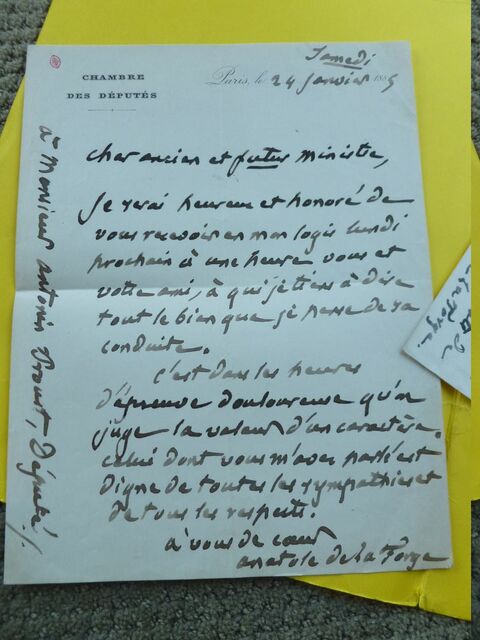 Samedi
CHAMBRE
DES DÉPUTÉS
Paris, le 24 Janvier 1885
cher ancien et futur ministre,
Je serai heureux et honoré de
vous recevoir en mon logis lundi
prochain à une heure vous et
votre ami, à qui je tiens à dire
tout le bien que je pense de sa
conduite.
c'est dans les heures
d'épreuve douloureuse qu'on
juge la valeur d'un caractère.
celui dont vous m'avez parlé est
digne de toutes les sympathies et
de tous les respects.
à vous de cœur
anatole de la Forge
à Monsieur antonin Proust, Député/.